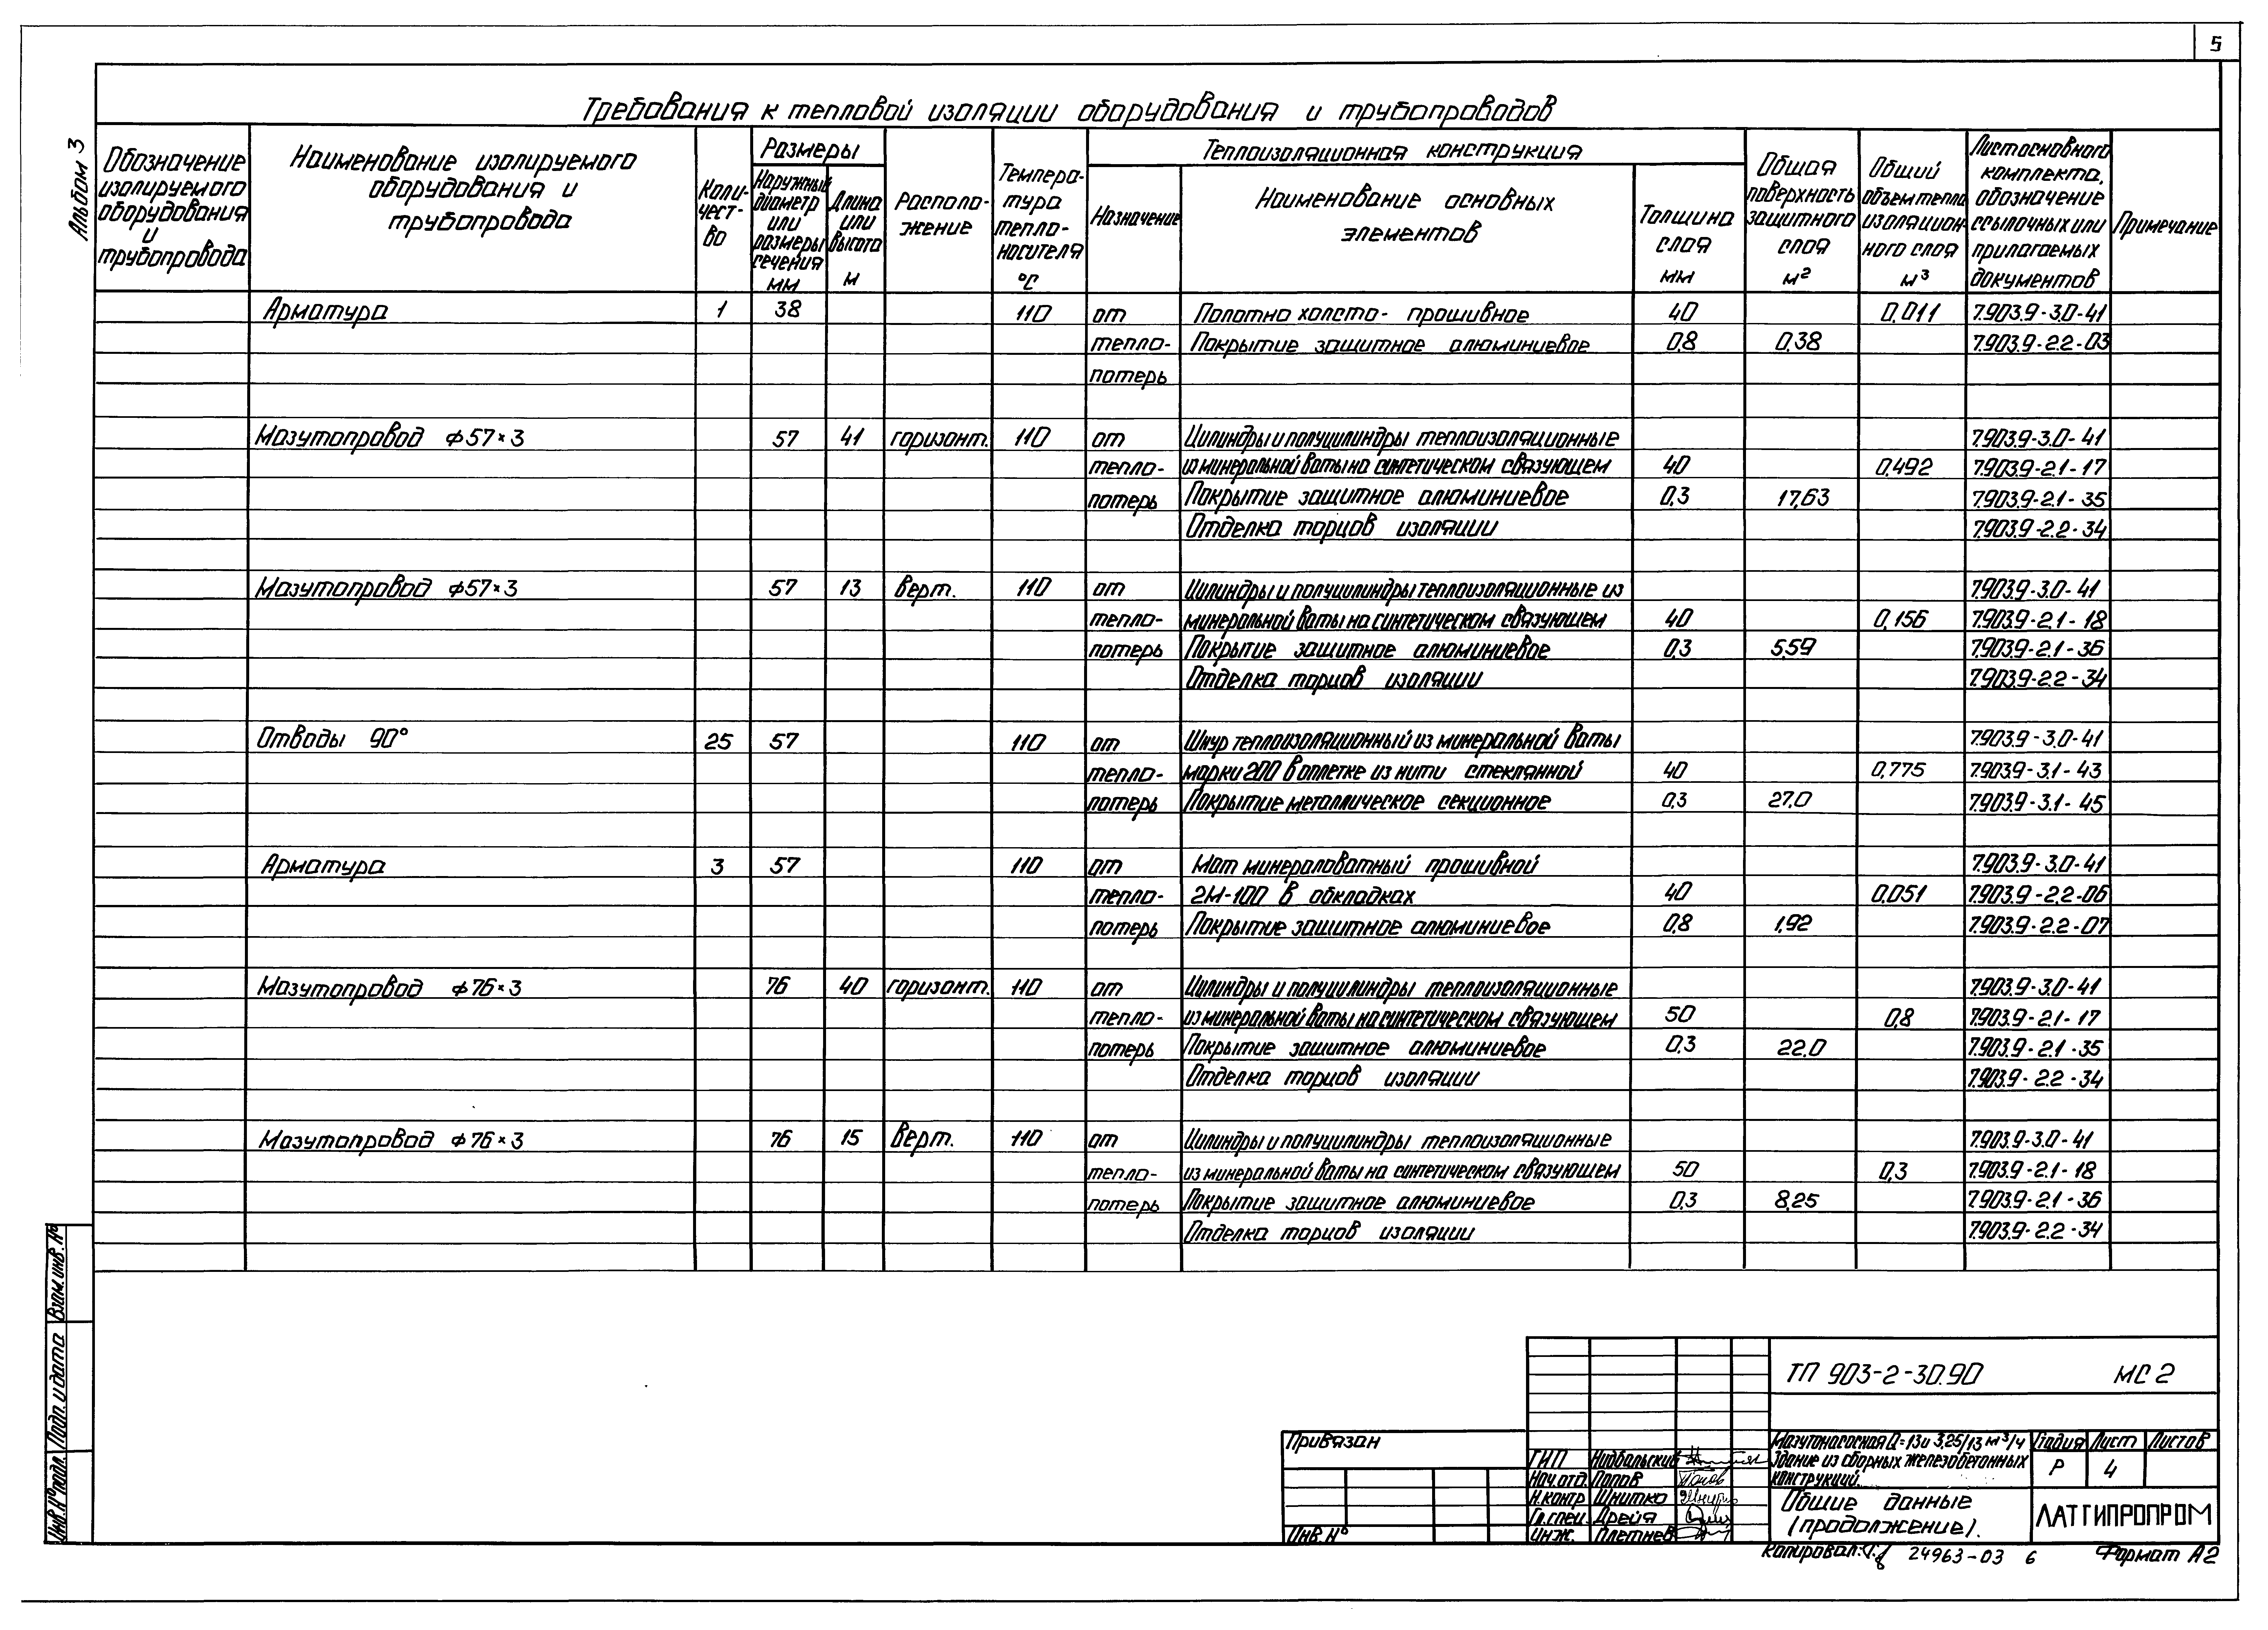 5
Альбом 3
Требования к тепловой изоляции оборудования и трубопроводов
Обозначение изолируемого оборудования и трубопровода
Наименование изолируемого оборудования и трубопровода
Количест-во
Размеры
Наружный диаметр или размеры сечения мм
Длина или высота м
Располо-жение
Темпера-тура тепло-носителя °С
Теплоизоляционная конструкция
Назначение
Наименование основных элементов
Толщина слоя мм
Общая поверхность защитного слоя м²
Общий объем тепло изоляцион-ного слоя м³
Лист основного комплекта, обозначение ссылочных или прилагаемых документов
Примечание
Арматура 1 38 110 от Полотно холсто- прошивное 40 0,011 7.903.9-3.0-41
тепло- Покрытие защитное алюминиевое 0,8 0,38 7.903.9-2.2-03
потерь
Мазутопровод ф57×3 57 41 горизонт. 110 от Цилиндры и полуцилиндры теплоизоляционные 7.903.9-3.0-41
тепло- из минеральной ваты на синтетическом связующем 40 0,492 7.903.9-2.1-17
потерь Покрытие защитное алюминиевое 0,3 17,63 7.903.9-2.1-35
Отделка торцов изоляции 7.903.9-2.2-34
Мазутопровод ф57×3 57 13 верт. 110 от Цилиндры и полуцилиндры теплоизоляционные из 7.903.9-3.0-41
тепло- минеральной ваты на синтетическом связующем 40 0,156 7.903.9-2.1-18
потерь Покрытие защитное алюминиевое 0,3 5,59 7.903.9-2.1-36
Отделка торцов изоляции 7.903.9-2.2-34
Отводы 90° 25 57 110 от Шнур теплоизоляционный из минеральной ваты 7.903.9-3.0-41
тепло- марки 200 в оплетке из нити стеклянной 40 0,775 7.903.9-3.1-43
потерь Покрытие металлическое секционное 0,3 27.0 7.903.9-3.1-45
Арматура 3 57 110 от Мат минераловатный прошивной 7.903.9-3.0-41
тепло- 2М-100 в обкладках 40 0,051 7.903.9-2.2-06
потерь Покрытие защитное алюминиевое 0,8 1,92 7.903.9-2.2-07
Мазутопровод ф76×3 76 40 горизонт. 110 от Цилиндры и полуцилиндры теплоизоляционные 7.903.9-3.0-41
тепло- из минеральной ваты на синтетическом связующем 50 0,8 7.903.9-2.1-17
потерь Покрытие защитное алюминиевое 0,3 22.0 7.903.9-2.1-35
Отделка торцов изоляции 7.903.9-2.2-34
Мазутопровод ф76×3 76 15 верт. 110 от Цилиндры и полуцилиндры теплоизоляционные 7.903.9-3.0-41
тепло- из минеральной ваты на синтетическом связующем 50 0,3 7.903.9-2.1-18
потерь Покрытие защитное алюминиевое 0,3 8,25 7.903.9-2.1-36
Отделка торцов изоляции 7.903.9-2.2-34
Взам. инв. №
Подп. и дата
Инв. № подл.
ТП 903-2-30.90 МС 2
Привязан
Инв. №
ГИП Нидбальский
Нач. отд. Попов
Н. контр Шнитко
Гл. спец. Дрейя
Инж. Плетнев
Мазутонасосная Q=13 и 3,25/13 м³/ч
Здание из сборных железобетонных
конструкций.
Стадия Лист Листов
Р 4
Общие данные
(продолжение).
ЛАТГИПРОПРОМ
Копировал: 24963-03 6 Формат А2